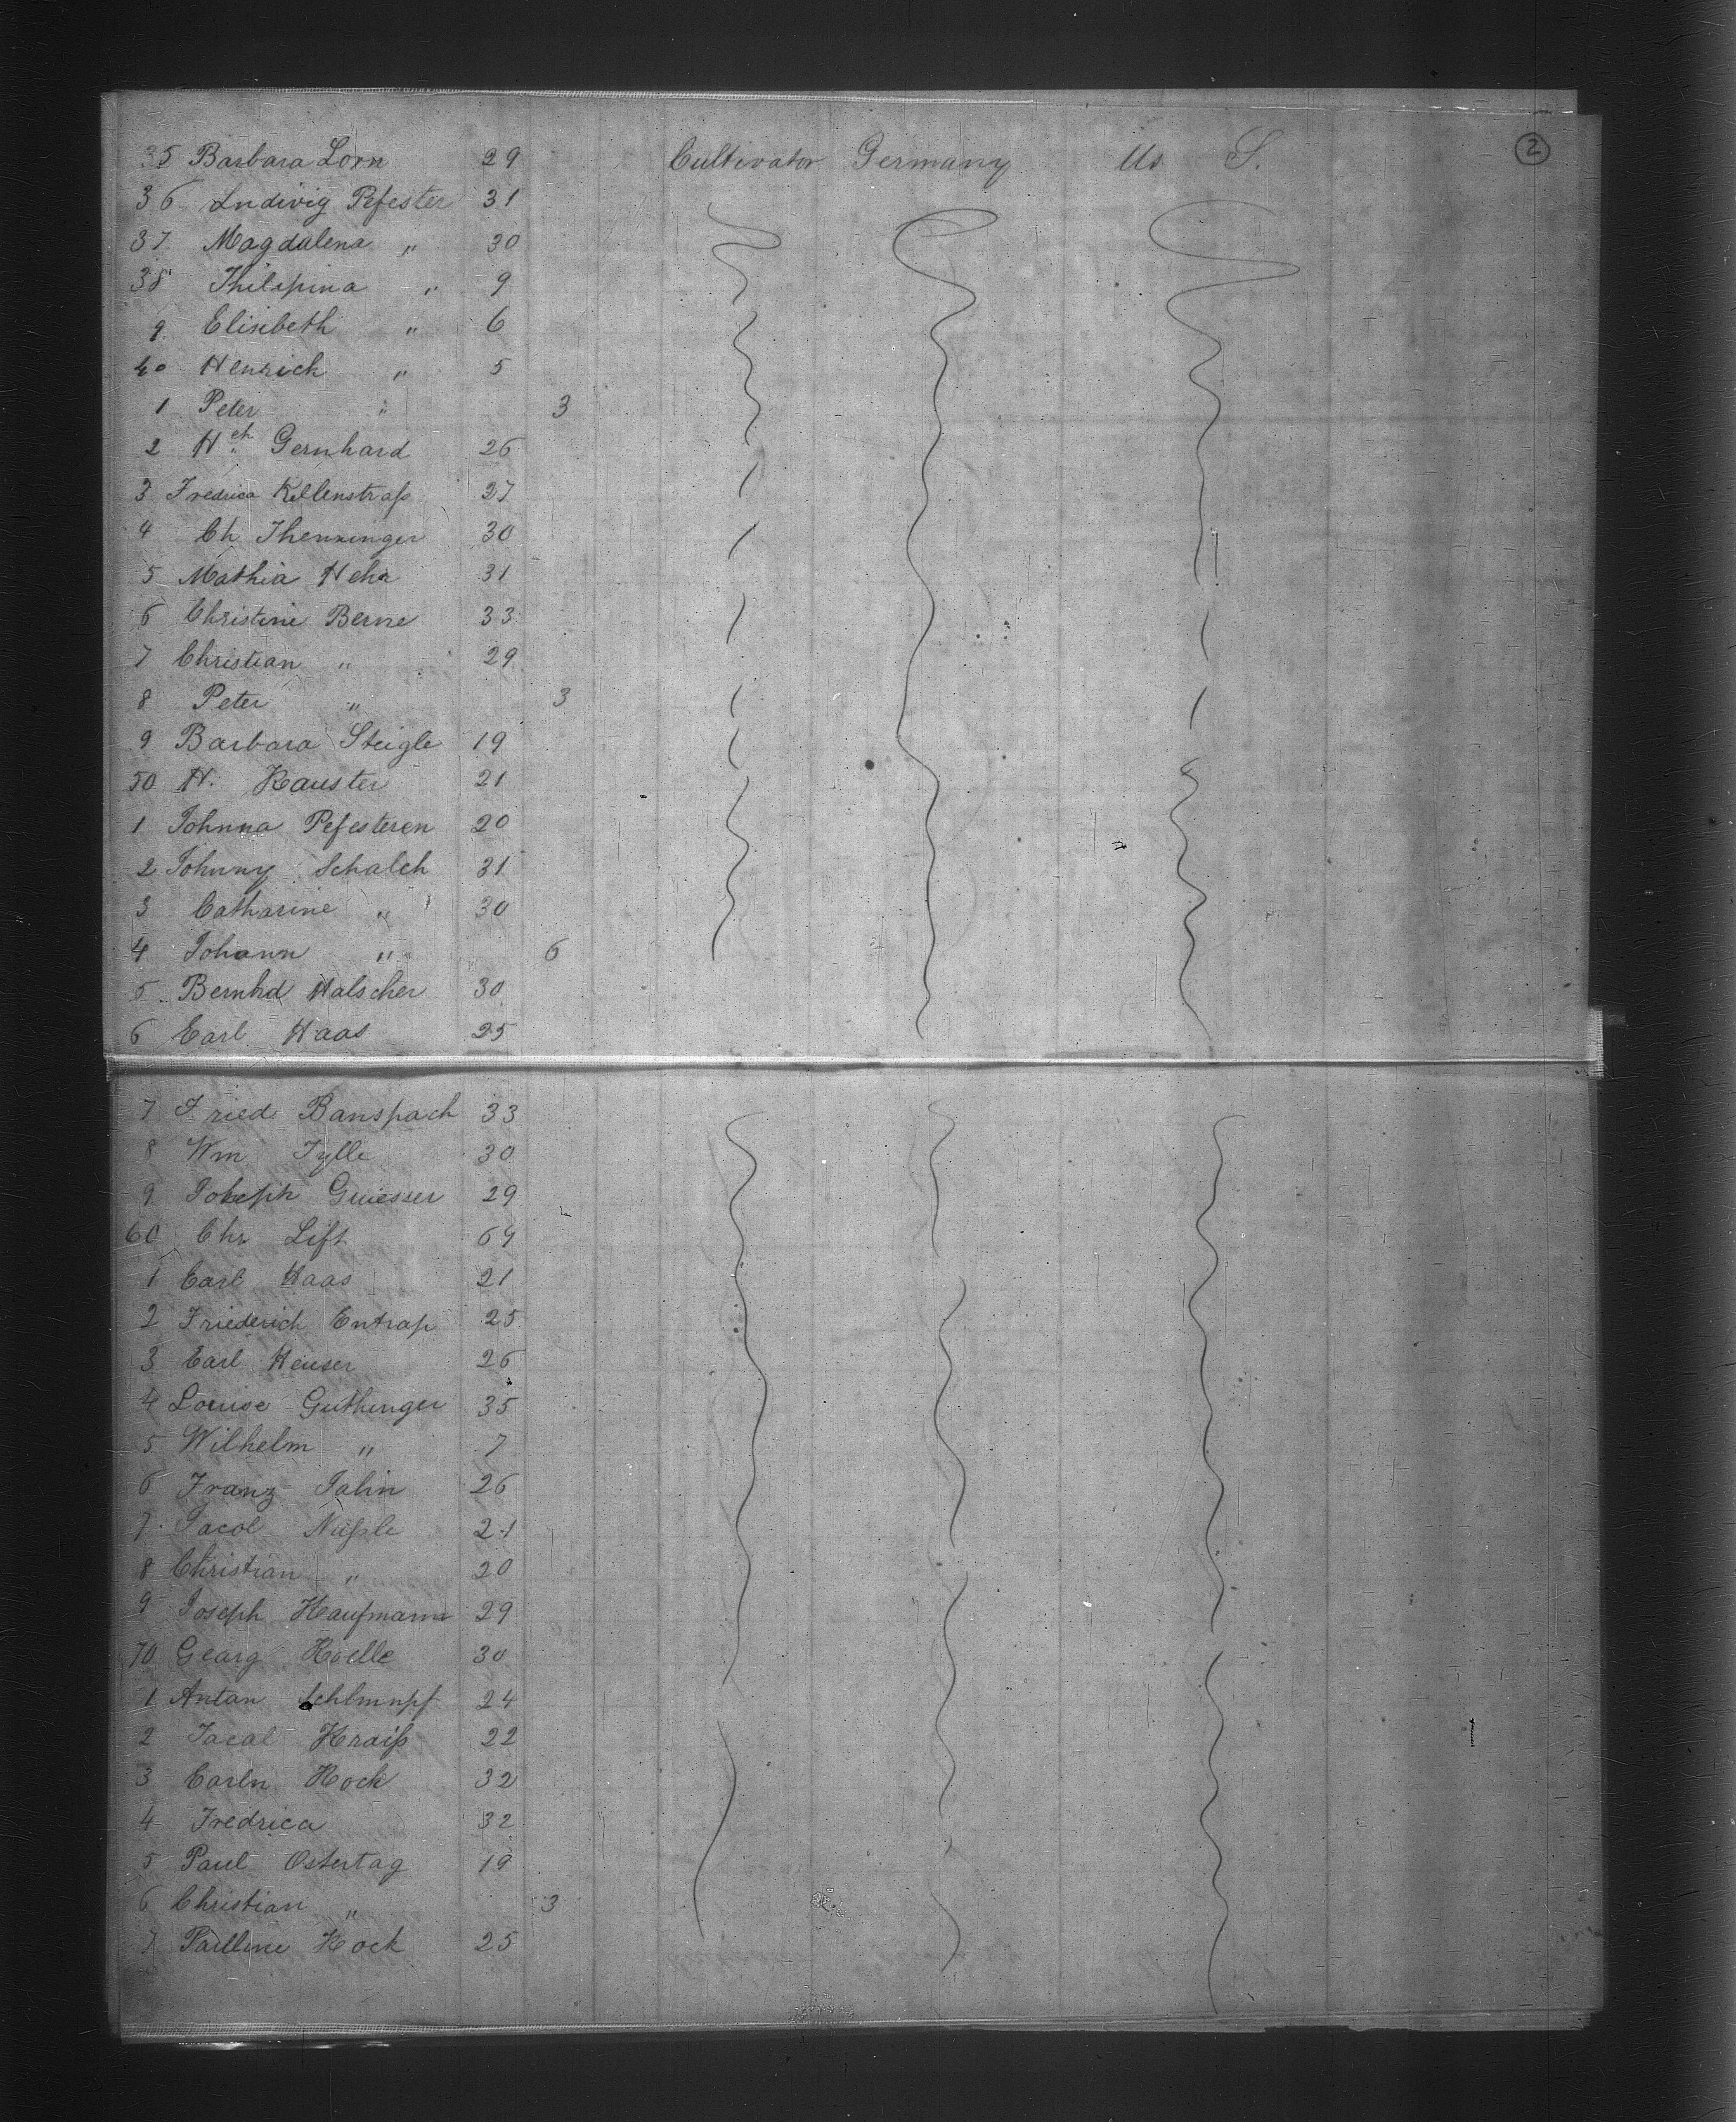 35 Barbara Lorn 29 Cultivator Germany Us S. 2
36 Ludwig Pefester 31
37 Magdalena " 30
38 Philipina " 9
9 Elisibeth " 6
40 Henrich " 5
1 Peter " 3
2 Hch Gernhard 26
3 Fredrica Kellenstraß 27
4 Ch Thenninger 30
5 Mathia Hehr 31
6 Christine Berne 33
7 Christian " 29
8 Peter " 3
9 Barbara Steigle 19
50 H. Kauster 21
1 Johnna Pefesteren 20
2 Johnny Schalch 31
3 Catharine " 30
4 Johann " 6
5 Bernhd Halscher 30
6 Carl Haas 25
7 Fried Banspach 33
8 Wm Tylle 30
9 Joheph Guiesser 29
60 Chr Lift 64
1 Carl Haas 21
2 Friederich Entrap 25
3 Carl Heuser 26
4 Louise Guthinger 35
5 Wilhelm " 7
6 Franz Jahn 26
7 Jacol Nüßle 21
8 Christian " 20
9 Joseph Kaufmann 29
70 Gearg Koelle 30
1 Antan Schlmupf 24
2 Jacal Kraiß 22
3 Carln Hock 32
4 Fredrica 32
5 Paul Ostertag 19
6 Christian " 3
7 Paulline Hock 25